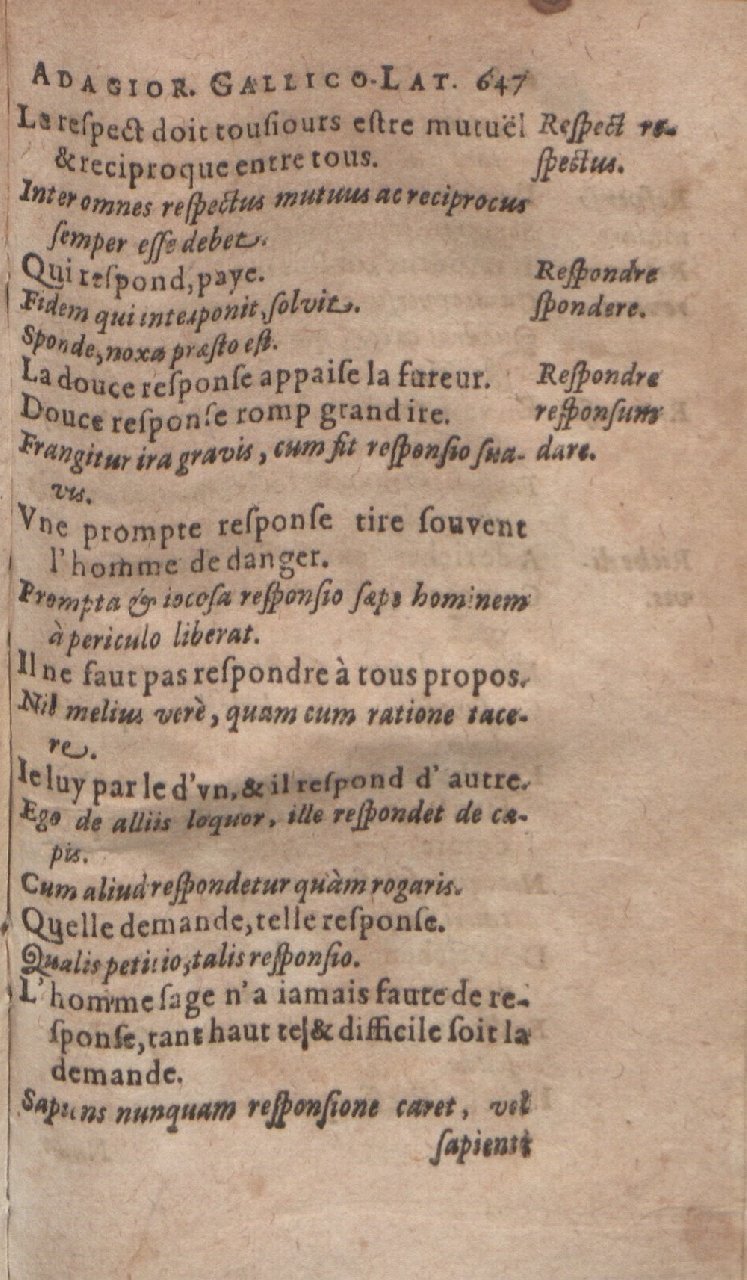 ADAGIOR. GALLICO-LAT. 647
Le respect doit tousiours estre mutuël
& reciproque entre tous.
Inter omnes respectus mutuus ac reciprocus
semper esse debet.
Qui respond, paye.
Fidem qui interponit, solvit.
Sponde, noxa præsto est.
La douce response appaise la fureur.
Douce response romp grand ire.
Frangitur ira gravis, cum fit responsio sua-
vis.
Vne prompte response tire souvent
l'homme de danger.
Prompta & iocosa responsio sæpe hominem
à periculo liberat.
Il ne faut pas respondre à tous propos.
Nil melius verè, quam cum ratione tace-
re.
Ie luy parle d'vn, & il respond d'autre.
Ego de alliis loquor, ille respondet de cæ-
pis.
Cum aliud respondetur quàm rogaris.
Quelle demande, telle response.
Qualis petitio, talis responsio.
L'homme sage n'a iamais faute de re-
sponse, tant haut te & difficile soit la
demande.
Sapiens nunquam responsione caret, vel
sapienti
Respect re-
spectus.
Respondre
spondere.
Respondre
responsum
dare.